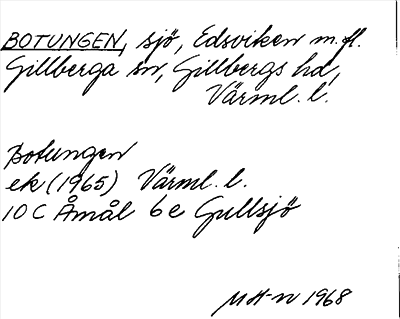 BOTUNGEN, sjö, Edsviken m.fl.
Gillberga sn, Gillbergs hd,
Värml. l.
Botungen
ek (1965) Värml. l.
10 C Åmål 6 e Gullsjö
MH-n 1968